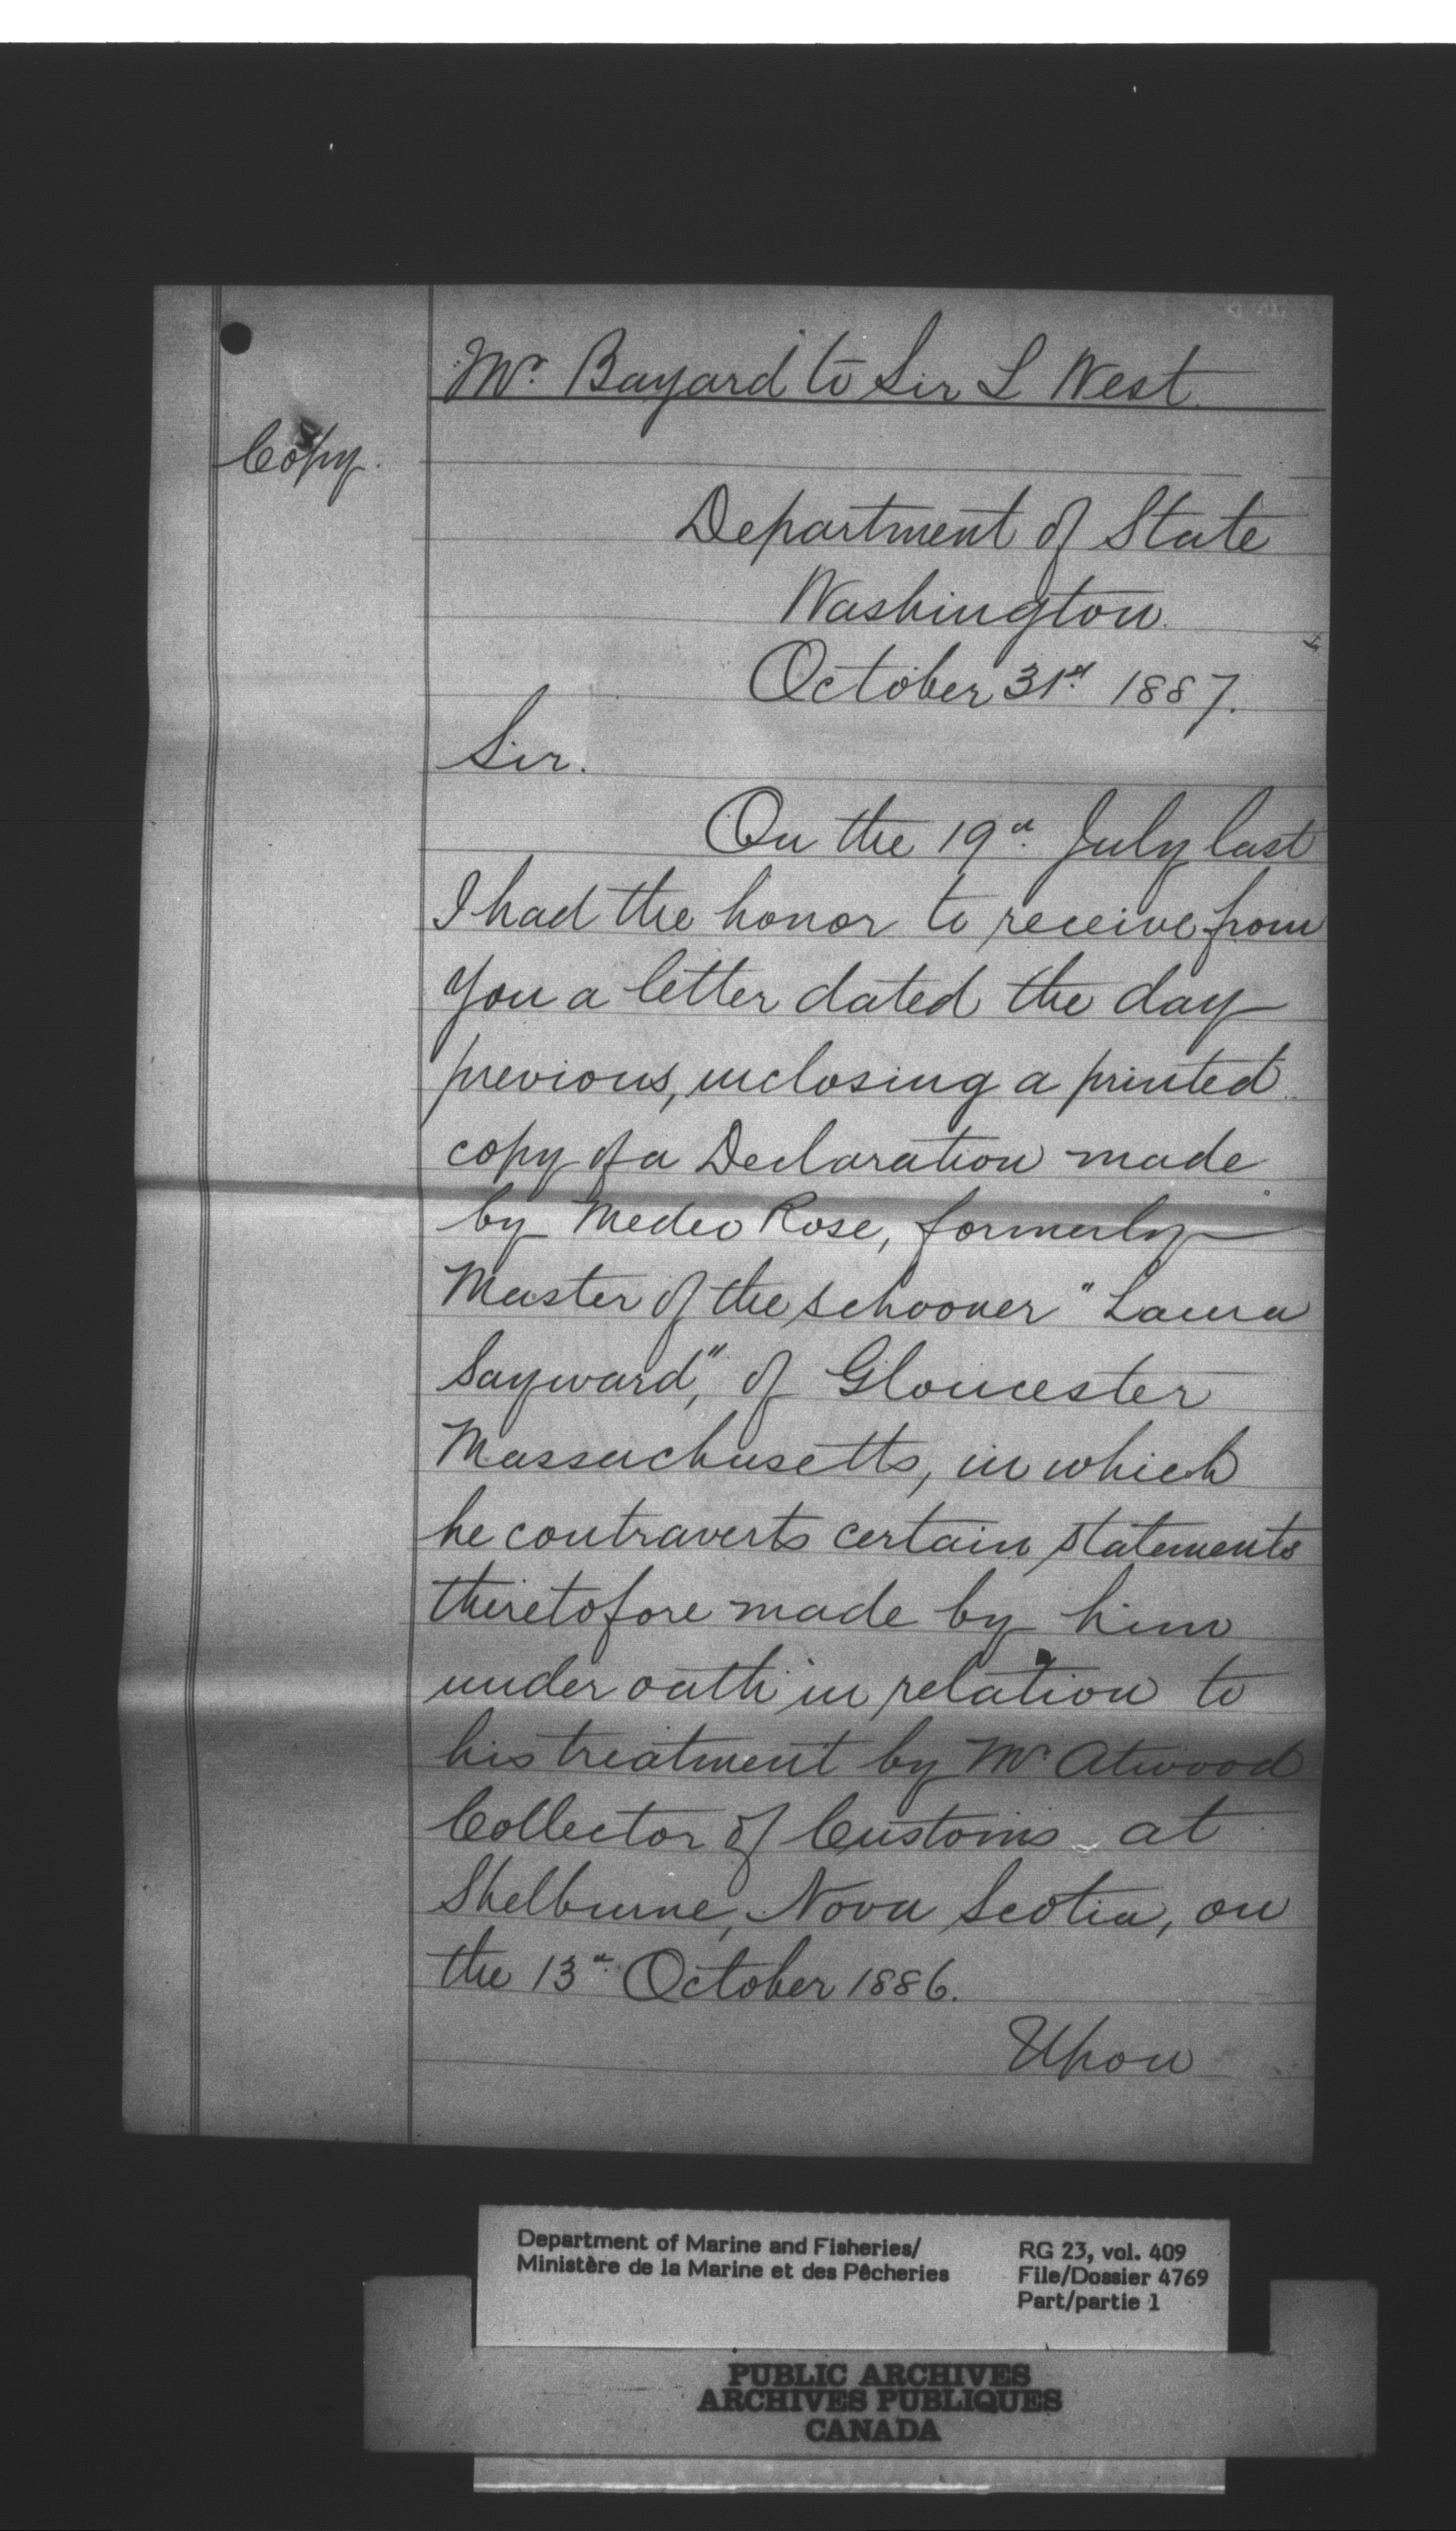 Mr. Bayard to Sir L West.
Copy.
Department of State
Washington.
October 31st 1887.
Sir.
On the 19th July last
I had the honor to receive from
you a letter dated the day
previous, inclosing a printed
copy of a Declaration made
by Medeo Rose, formerly
Master of the schooner "Laura
Sayward," of Gloucester
Massachusetts, in which
he contraverts certain statements
theretofore made by him
under oath in relation to
his treatment by Mr. Atwood
Collector of Customs at
Shelburne, Nova Scotia, on
the 13th October 1886.
Upon
Department of Marine and Fisheries/
Ministère de la Marine et des Pêcheries
RG 23, vol. 409
File/Dossier 4769
Part/partie 1
PUBLIC ARCHIVES
ARCHIVES PUBLIQUES
CANADA